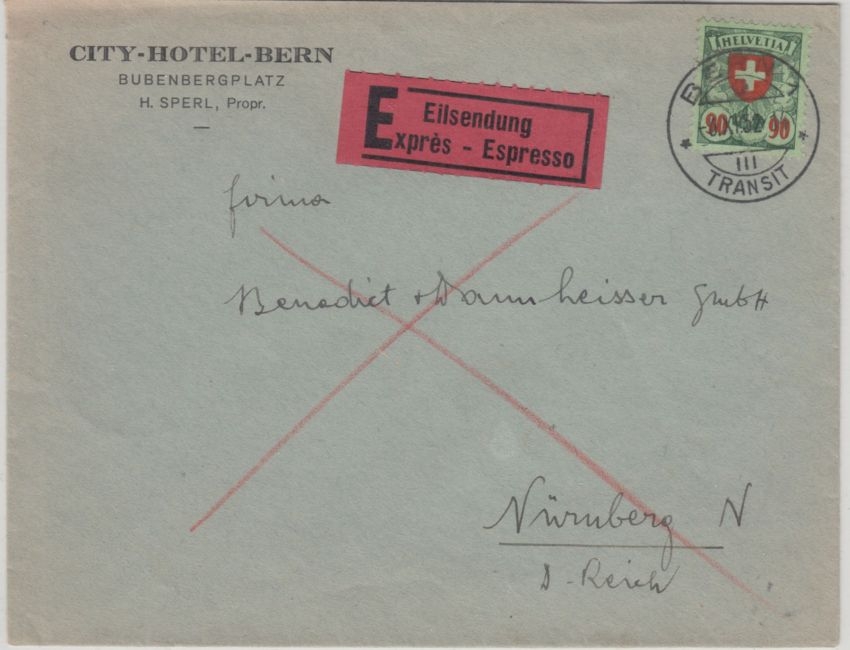 CITY-HOTEL-BERN
BUBENBERGPLATZ
H. SPERL, Propr.
Eilsendung
Exprès - Espresso
HELVETIA
90 90
BERN 1
III
TRANSIT
Firma
Benedict & Dannheisser GmbH
Nürnberg N
D-Reich